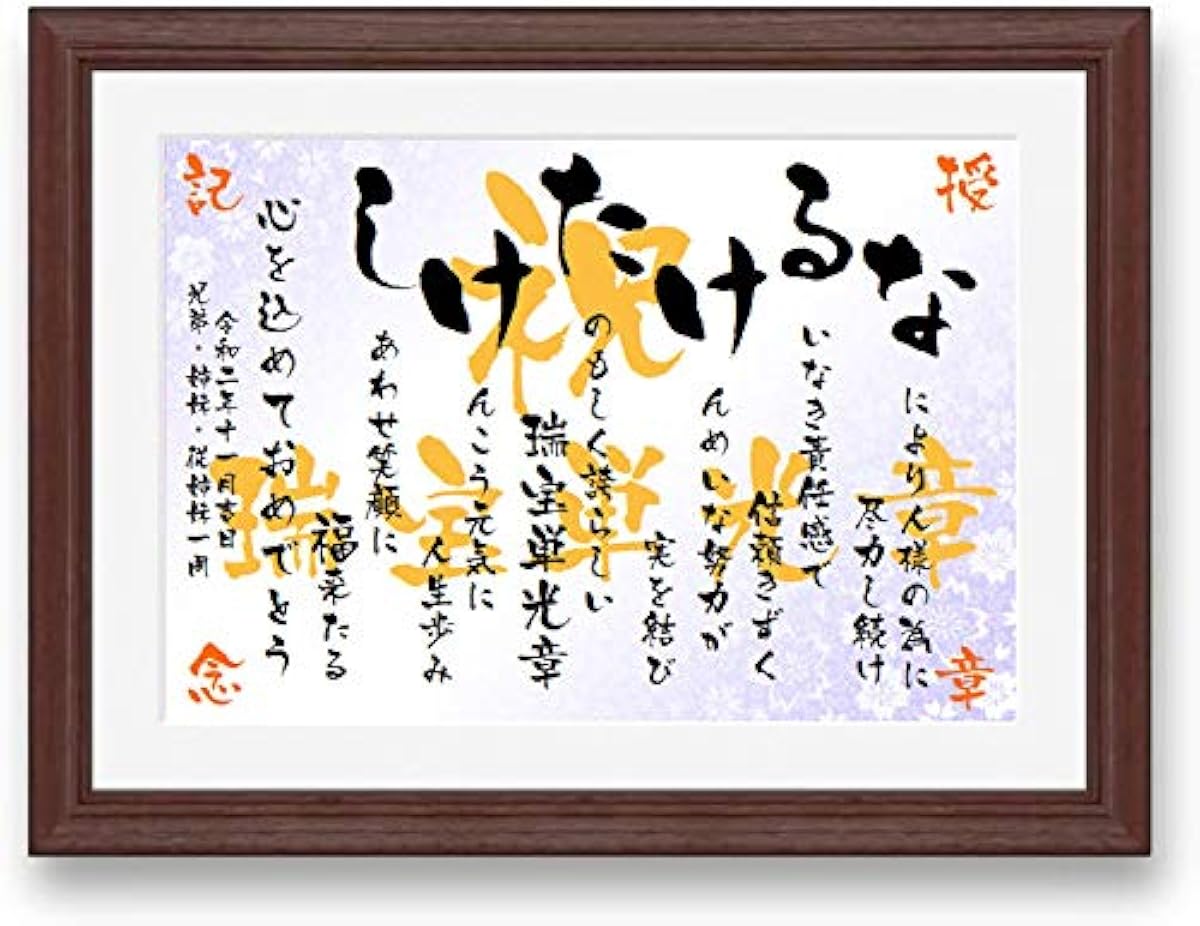 授章
記念
祝
瑞宝単光章
なにより人様の為に
尽力し続け
るいなき責任感で
信頼きずく
けんめいな努力が
実を結び
たのもしく誇らしい
瑞宝単光章
けんこう元気に
人生歩み
しあわせ笑顔に
福来たる
心を込めておめでとう
令和二年十一月吉日
兄弟・姉妹・従姉妹一同